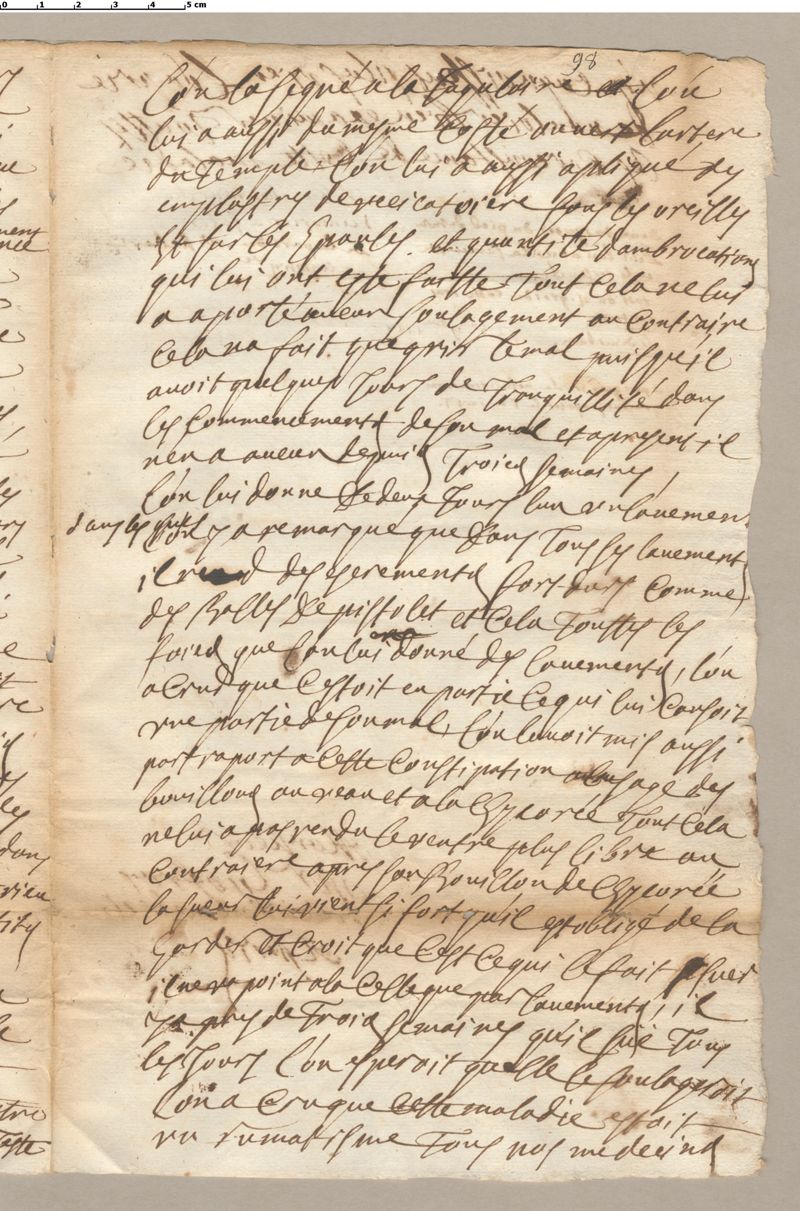 98
l'on la segné a la Jugulaire et l'on
lui a aussi du mesme Costé ouvert l'artere
du Temple l'on lui a aussi apliqué des
emplastres de vecicatoiere sous les oreilles
Et sur les Epaules. et quantité dambrocations
qui lui ont esté faitte Tout Cela ne lui
a aporté aucun soulagement au Contraire
Cela na fait que grir le mal puis qu'il
avoit quelques Jours de Tranquillité dans
les Commencements de son mal et apresent il
nen a aucun depuis Troies semaines,
l'on lui donne de deux Jours l'un un lavement
dans les quels
l'on y a remarque que dans Tous ses lavements
il rend des exerements fort durs Comme
des Balles de pistolet et Cela Touttes les
foies que l'on lui donné des lavements, l'on
a Crud que C'estoit en partie Ce qui lui Causoit
une partie de son mal, l'on l'avoit mis aussi
par raport a Cette Constipation a l'usage des
bouillons au veau et a la Chycorée Tout Cela
ne lui a pas rendu le ventre plus libre au
Contraiere apres son Bouillon de Chycorée
la sueur lui vient si fort qu'il est obligé de la
garder Et Croit que C'est Ce qui le fait suer
il ne va point a la Celle que par lavements, il
y a pres de Troies semaines qu'il suë Tous
les Jours l'on esperoit qu'elle le soulageroit
l'on a Cru que Cette maladie estoit
un rumatisme Tous nos medecins